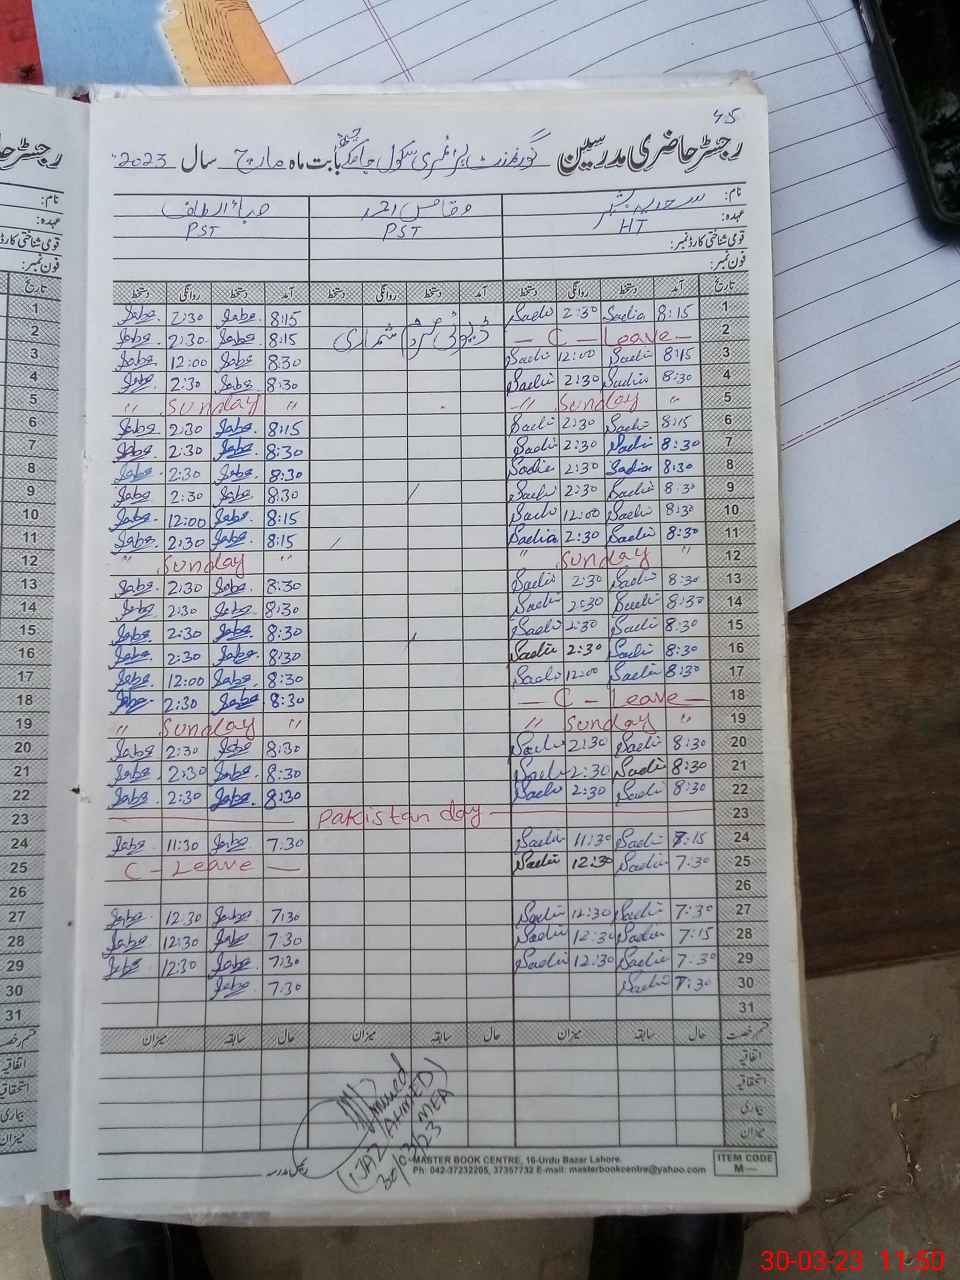 45
رجسٹر حاضری مدرسین گورنمنٹ پرائمری سکول بابت ماہ مارچ سال 2023
نام: سعدیہ بشیر وقاص احمد صباء الطاف
عہدہ: HT PST PST
قومی شناختی کارڈ نمبر:
فون نمبر:
تاریخ آمد دستخط روانگی دستخط آمد دستخط روانگی دستخط آمد دستخط روانگی دستخط
1 8:15 Sadia 2:30 Sadia 8:15 Saba 2:30 Saba
2 — C — Leave — ڈیوٹی مردم شماری 8:15 Saba 2:30 Saba
3 8:15 Sadia 12:00 Sadia 8:30 Saba 12:00 Saba
4 8:30 Sadia 2:30 Sadia 8:30 Saba 2:30 Saba
5 " Sunday " " Sunday "
6 8:15 Sadia 2:30 Sadia 8:15 Saba 2:30 Saba
7 8:30 Sadia 2:30 Sadia 8:30 Saba 2:30 Saba
8 8:30 Sadia 2:30 Sadia 8:30 Saba 2:30 Saba
9 8:30 Sadia 2:30 Sadia 8:30 Saba 2:30 Saba
10 8:30 Sadia 12:00 Sadia 8:15 Saba 12:00 Saba
11 8:30 Sadia 2:30 Sadia 8:15 Saba 2:30 Saba
12 " Sunday " " Sunday "
13 8:30 Sadia 2:30 Sadia 8:30 Saba 2:30 Saba
14 8:30 Sadia 2:30 Sadia 8:30 Saba 2:30 Saba
15 8:30 Sadia 2:30 Sadia 8:30 Saba 2:30 Saba
16 8:30 Sadia 2:30 Sadia 8:30 Saba 2:30 Saba
17 8:30 Sadia 12:00 Sadia 8:30 Saba 12:00 Saba
18 — C — Leave — 8:30 Saba 2:30 Saba
19 " Sunday " " Sunday "
20 8:30 Sadia 2:30 Sadia 8:30 Saba 2:30 Saba
21 8:30 Sadia 2:30 Sadia 8:30 Saba 2:30 Saba
22 8:30 Sadia 2:30 Sadia 8:30 Saba 2:30 Saba
23 Pakistan day
24 7:15 Sadia 11:30 Sadia 7:30 Saba 11:30 Saba
25 7:30 Sadia 12:30 Sadia C - Leave —
26
27 7:30 Sadia 12:30 Sadia 7:30 Saba 12:30 Saba
28 7:15 Sadia 12:30 Sadia 7:30 Saba 12:30 Saba
29 7:30 Sadia 12:30 Sadia 7:30 Saba 12:30 Saba
30 7:30 Sadia 7:30 Saba
31
قسم رخصت حال سابقہ میزان حال سابقہ میزان حال سابقہ میزان
اتفاقیہ
استحقاقیہ
بیماری
میزان
رئیس مدرسہ
(IJAZ AHMED)
MEA
30/03/23
MASTER BOOK CENTRE, 16-Urdu Bazar Lahore.
Ph: 042-37232205, 37357732 E-mail: masterbookcentre@yahoo.com
ITEM CODE
M—
30-03-23 11:50